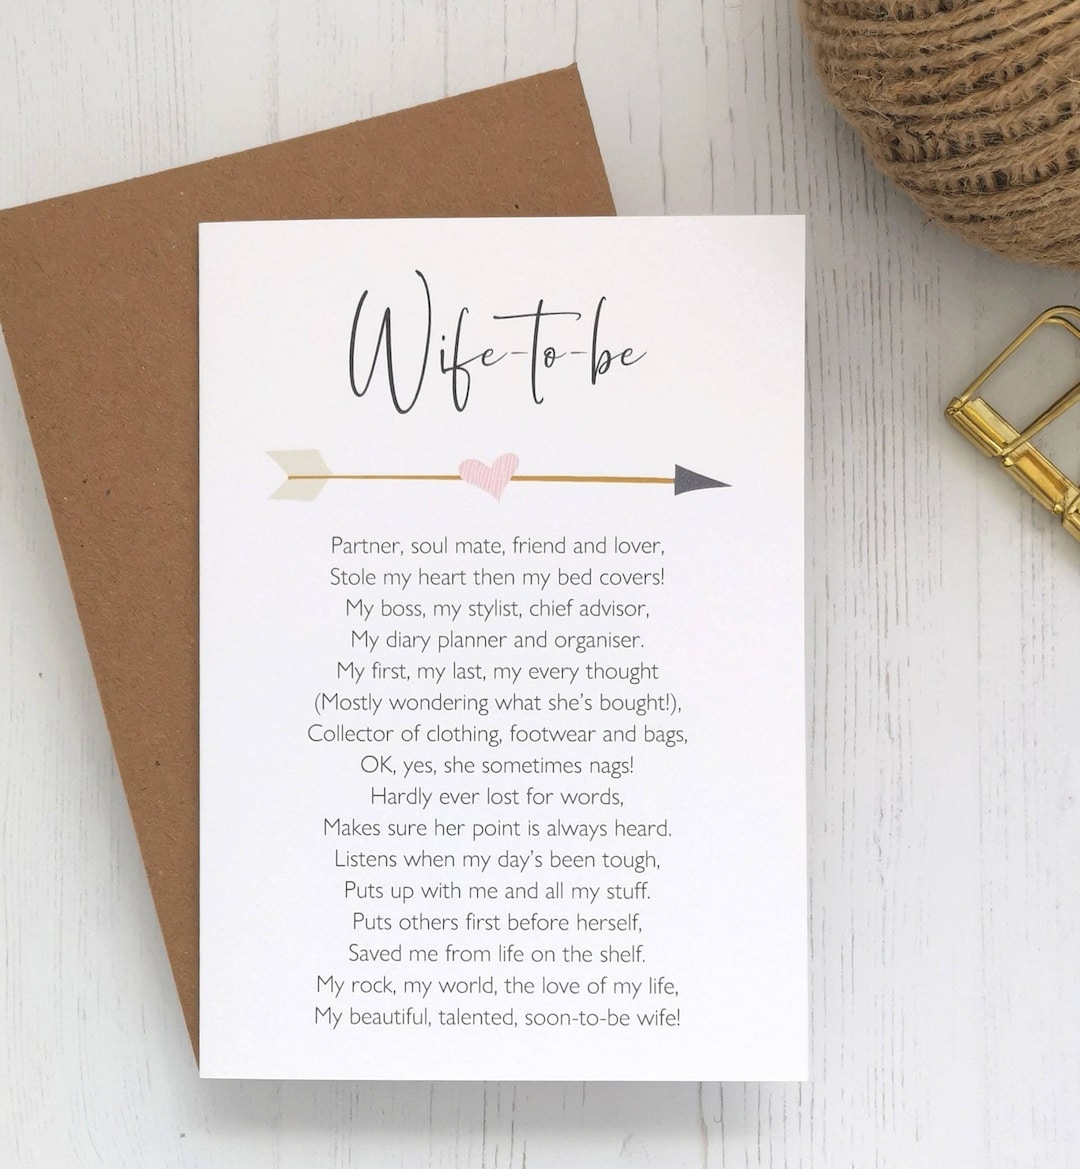 Wife-to-be
Partner, soul mate, friend and lover,
Stole my heart then my bed covers!
My boss, my stylist, chief advisor,
My diary planner and organiser.
My first, my last, my every thought
(Mostly wondering what she's bought!),
Collector of clothing, footwear and bags,
OK, yes, she sometimes nags!
Hardly ever lost for words,
Makes sure her point is always heard.
Listens when my day's been tough,
Puts up with me and all my stuff.
Puts others first before herself,
Saved me from life on the shelf.
My rock, my world, the love of my life,
My beautiful, talented, soon-to-be wife!